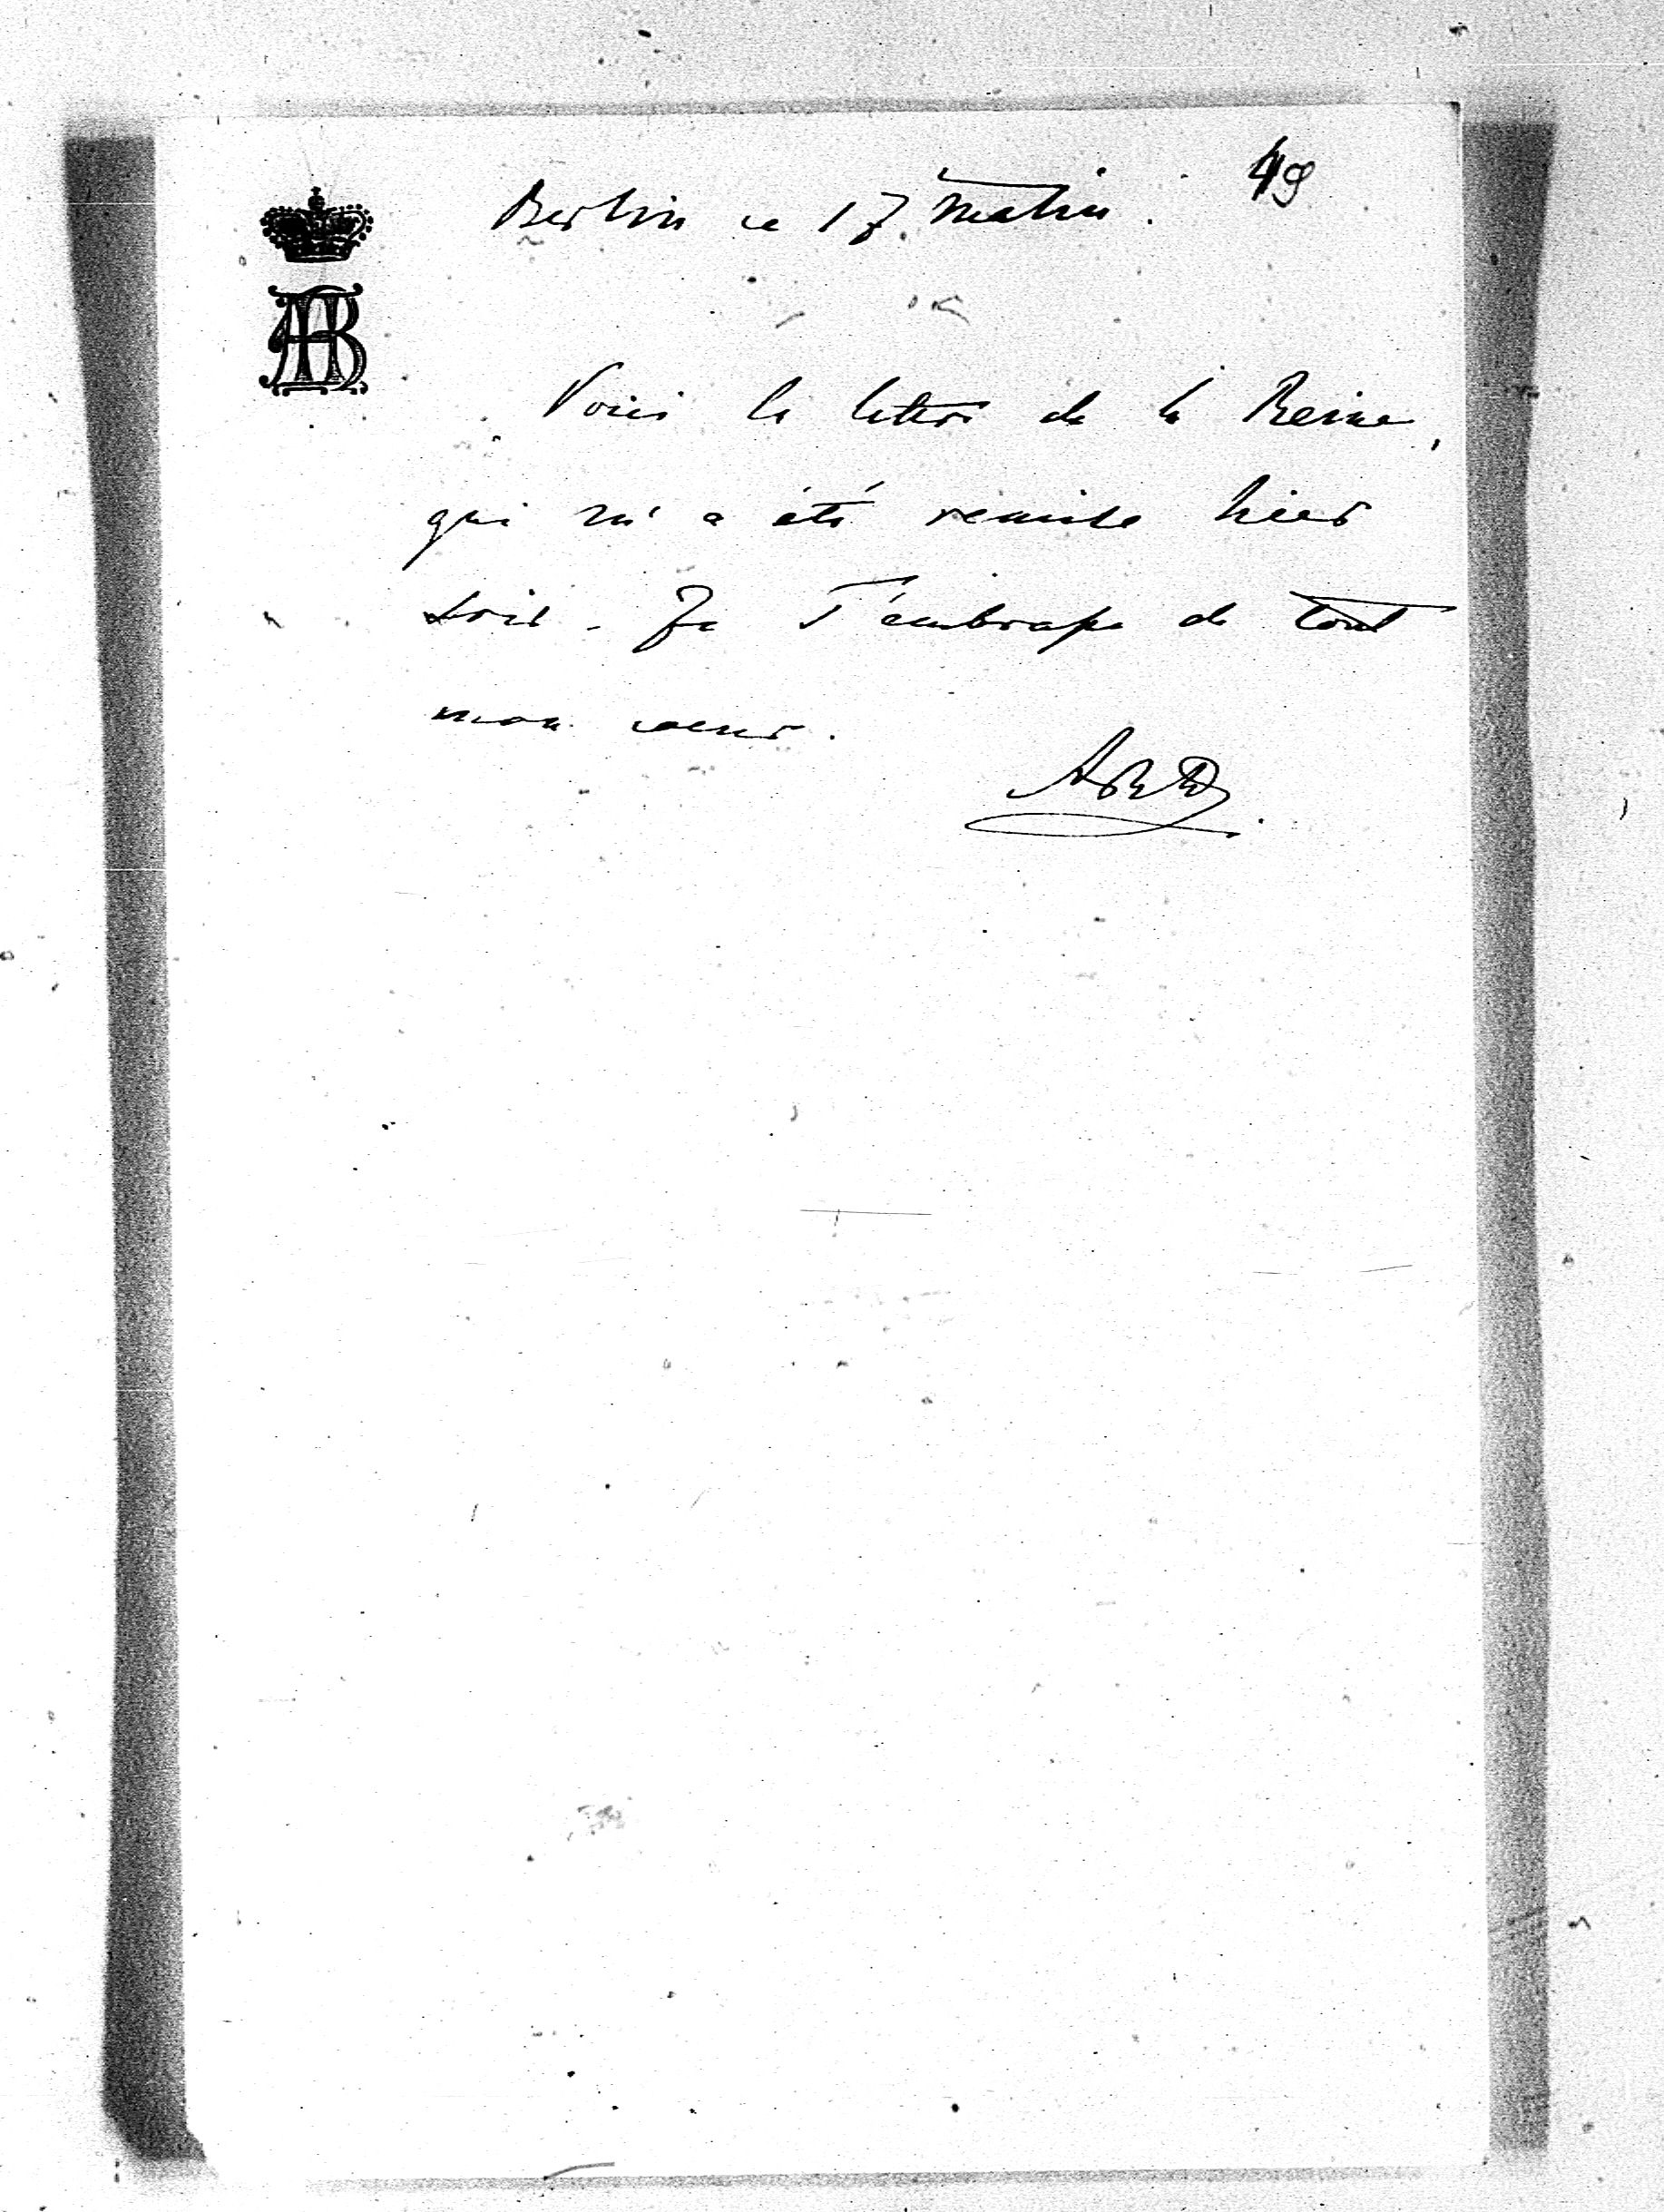 49
Berlin ce 17 matin.
Voici la lettre de la Reine,
qui m'a été remise hier
soir. Je t'embrasse de tout
mon cœur.